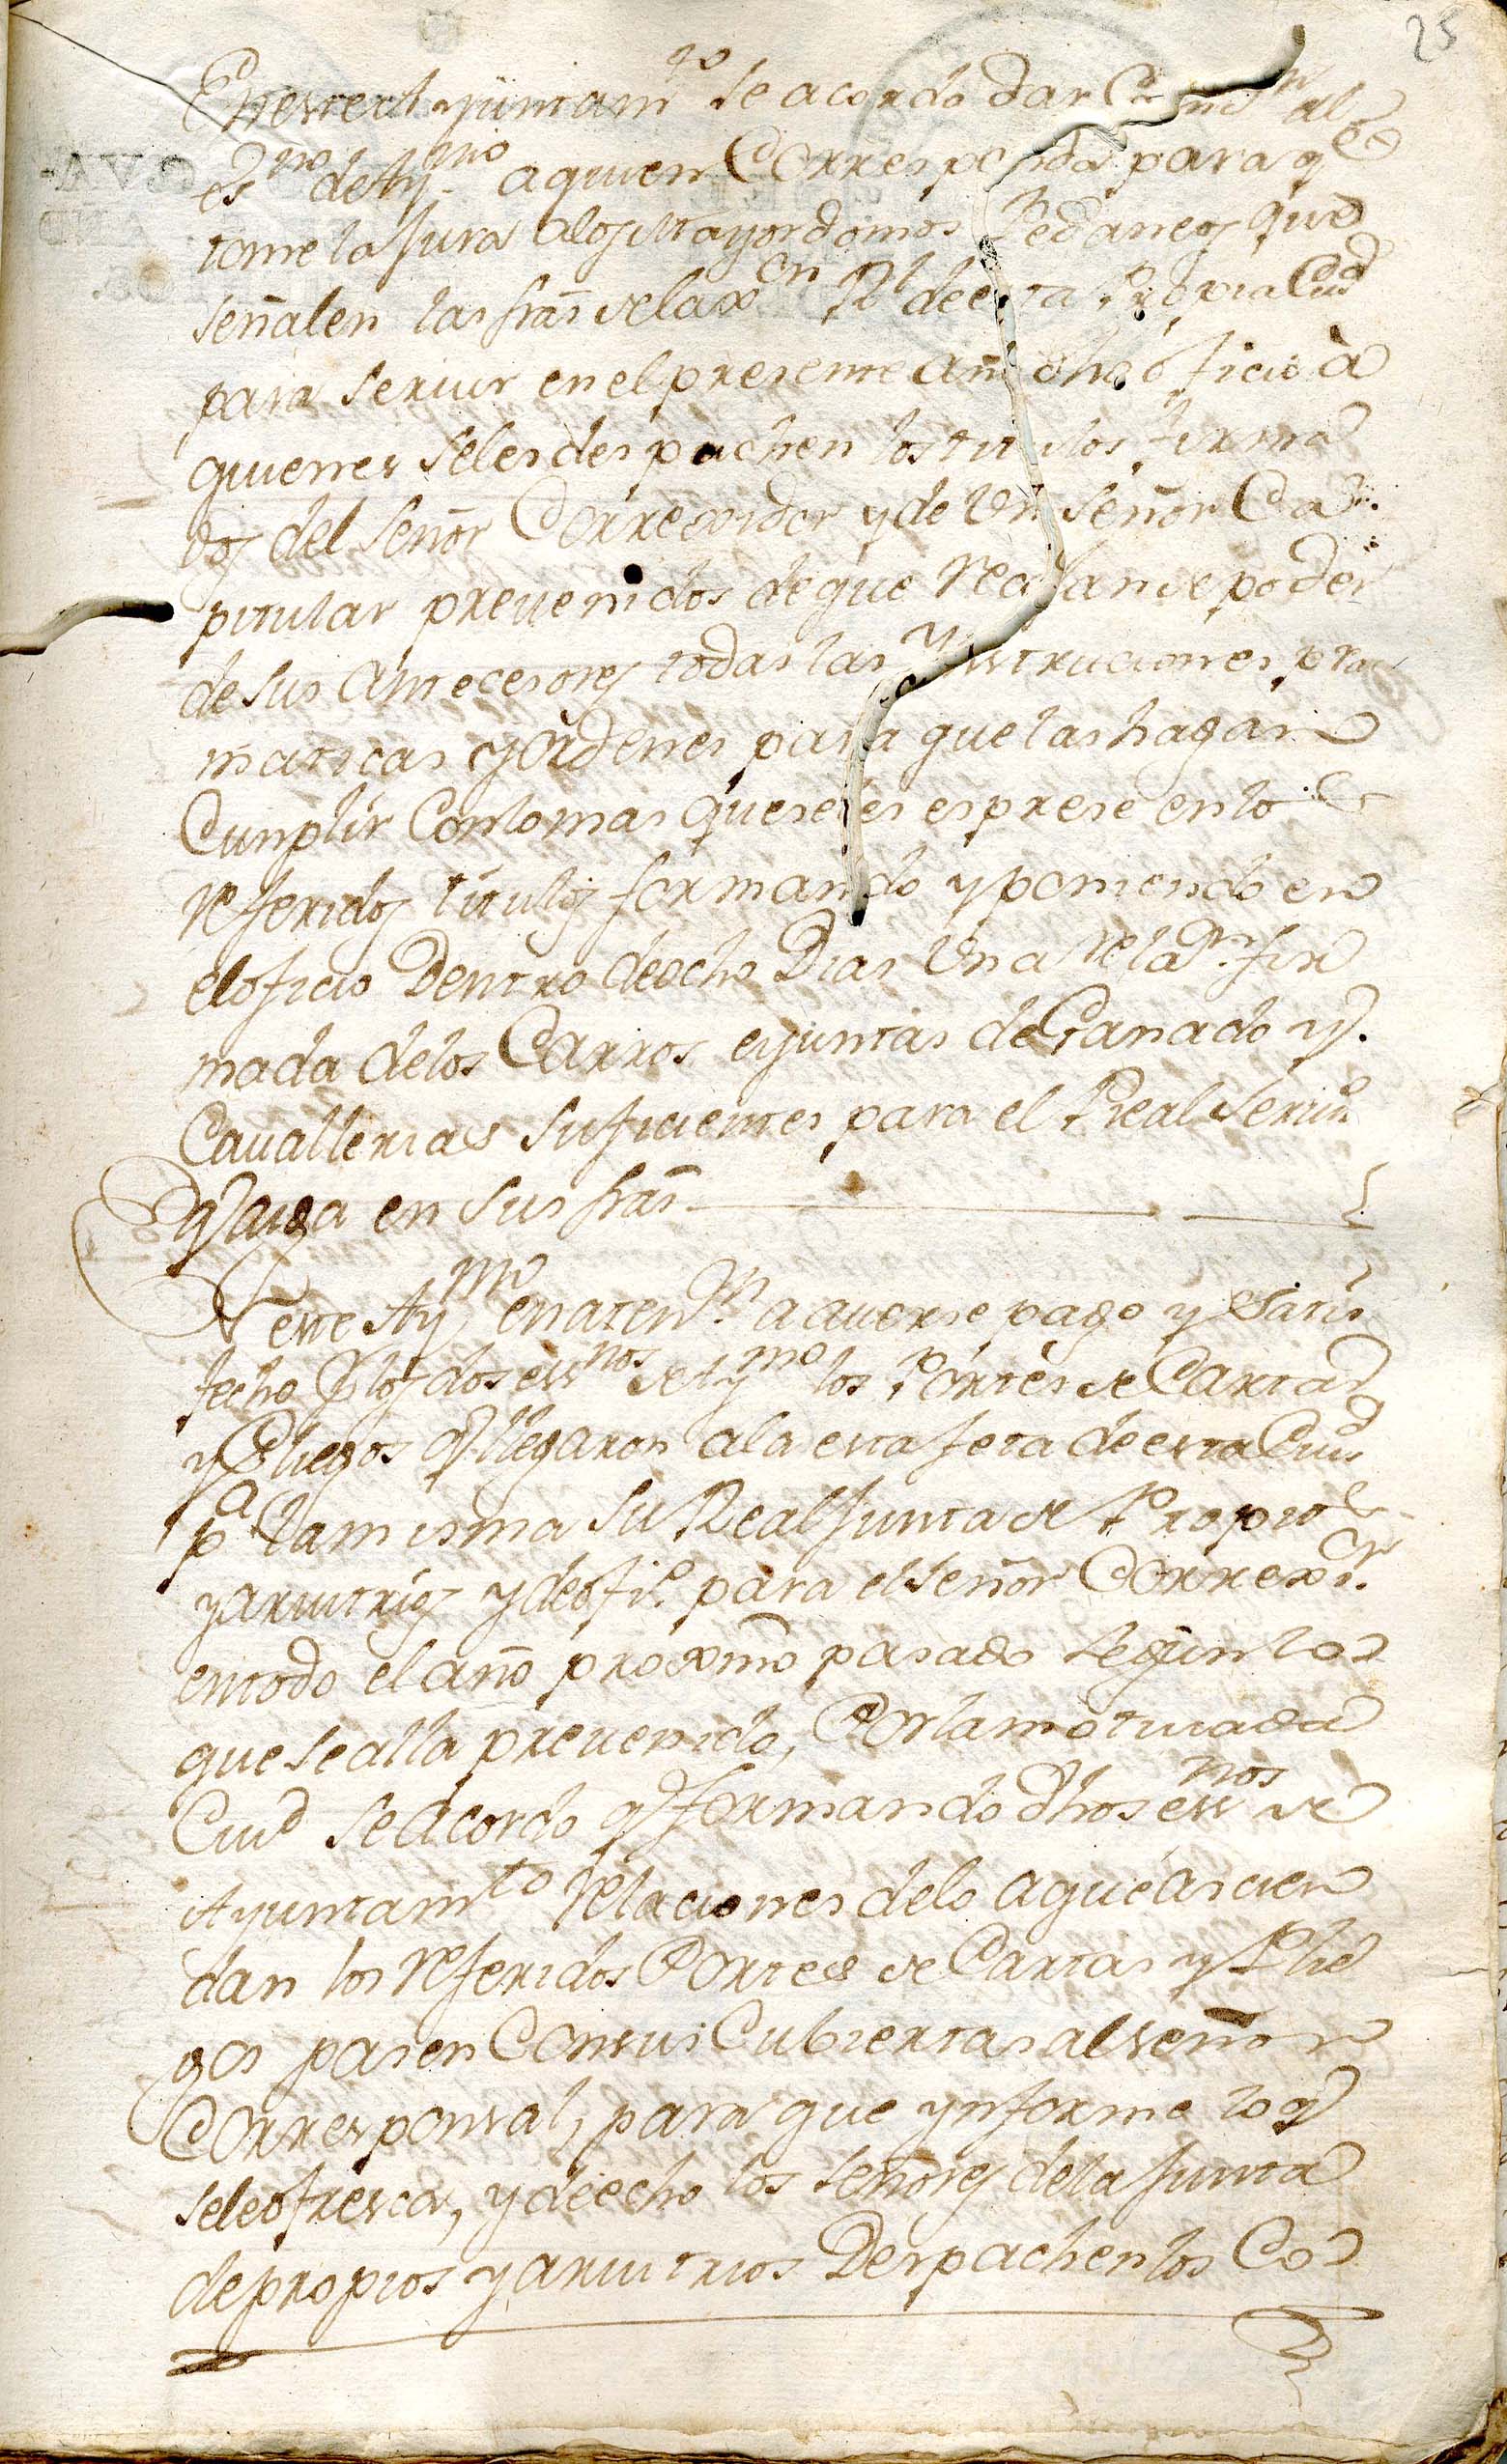 25
En este Ayuntam.to se acordo dar Com.n al
es.no de Ay.mo a quien Corresponda para q.e
tome la Jura alos Mayordomos Pedaneos que
señalen las fras de la Jx.on R.l de esta Propia Ciud.d
para seruir en el presente año dho oficio à
quienes seles despachen los titulos firma
dos del señor Correxidor y de Un señor Ca
pitular preuenidos de que recojan de poder
de sus Antecesores todas las ynstruciones prac
maticas y ordenes para que las hagan
Cunplir Con lo mas que se les esprese en lo s
referidos titulos formando y poniendo en
el oficio Dentro de ocho Dias Una relaz.n fir
mada de los Carros e yuntas de Ganado y
Cauallerias suficientes para el Real seruiz.o
q.e aiga en sus fras
N este Ay.mo en aten.on a auerse pago y satis
fecho p.r los dos ess.nos de Ay.mo los Portes de Cartas
y Pliegos q.e llegaron ala estafeta de esta Ciud.d
p.a la misma su Real Junta de Propios
y aruitrios y de ofi.o para el señor Correx.or
en todo el año proximo pasado segun lo
que se alla preuenido, Por la motiuada
Ciud.d se acordo q.e formando dhos ess.nos de
Ayuntam.to relaciones de lo a que ascien
dan los referidos Portes de Cartas y Plie
gos pasen Con sus Cubiertas al señor
Corresponsal, para que ynforme lo q.e
se le ofresca, y de echo los señores de la Junta
de propios y aruitrios Despachen los Co